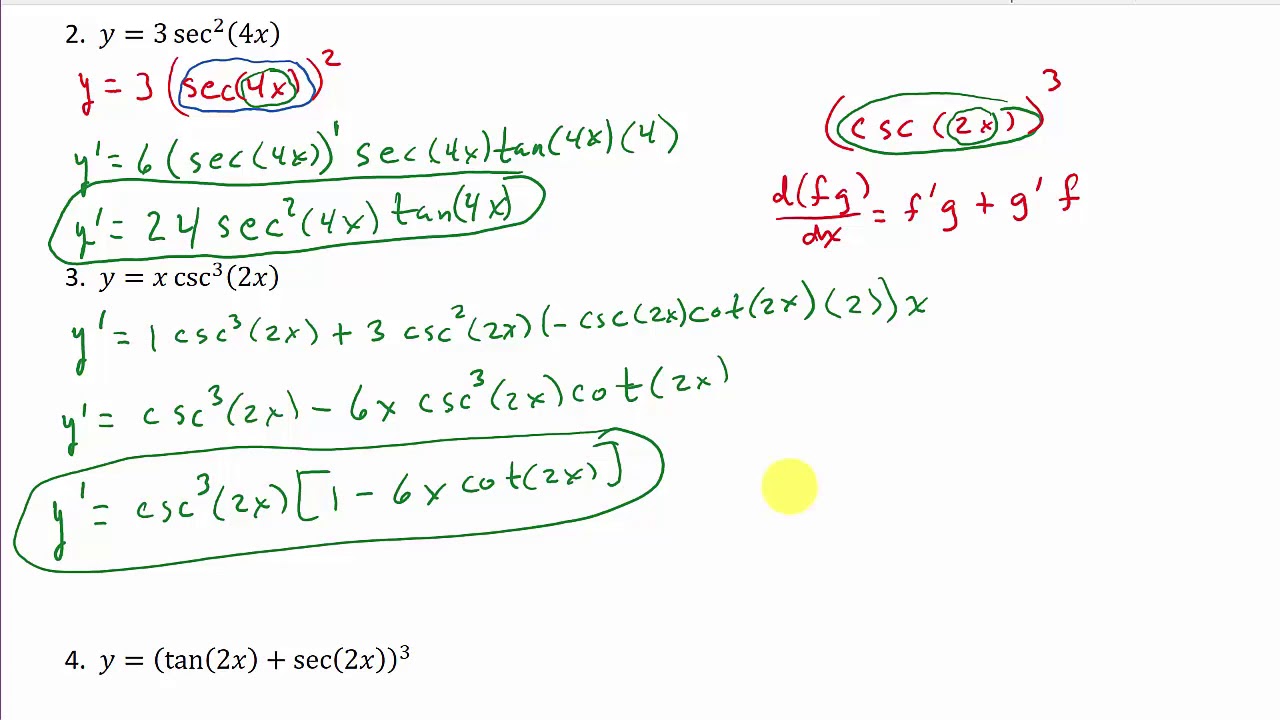 2. y = 3 sec²(4x)
y = 3 (sec(4x))²
y' = 6 (sec(4x))' sec(4x)tan(4x)(4)
y' = 24 sec²(4x) tan(4x)
(csc(2x))³
d(fg)/dx = f'g + g'f
3. y = x csc³(2x)
y' = 1 csc³(2x) + 3 csc²(2x)(-csc(2x)cot(2x)(2))x
y' = csc³(2x) - 6x csc³(2x)cot(2x)
y' = csc³(2x)[1 - 6x cot(2x)]
4. y = (tan(2x) + sec(2x))³